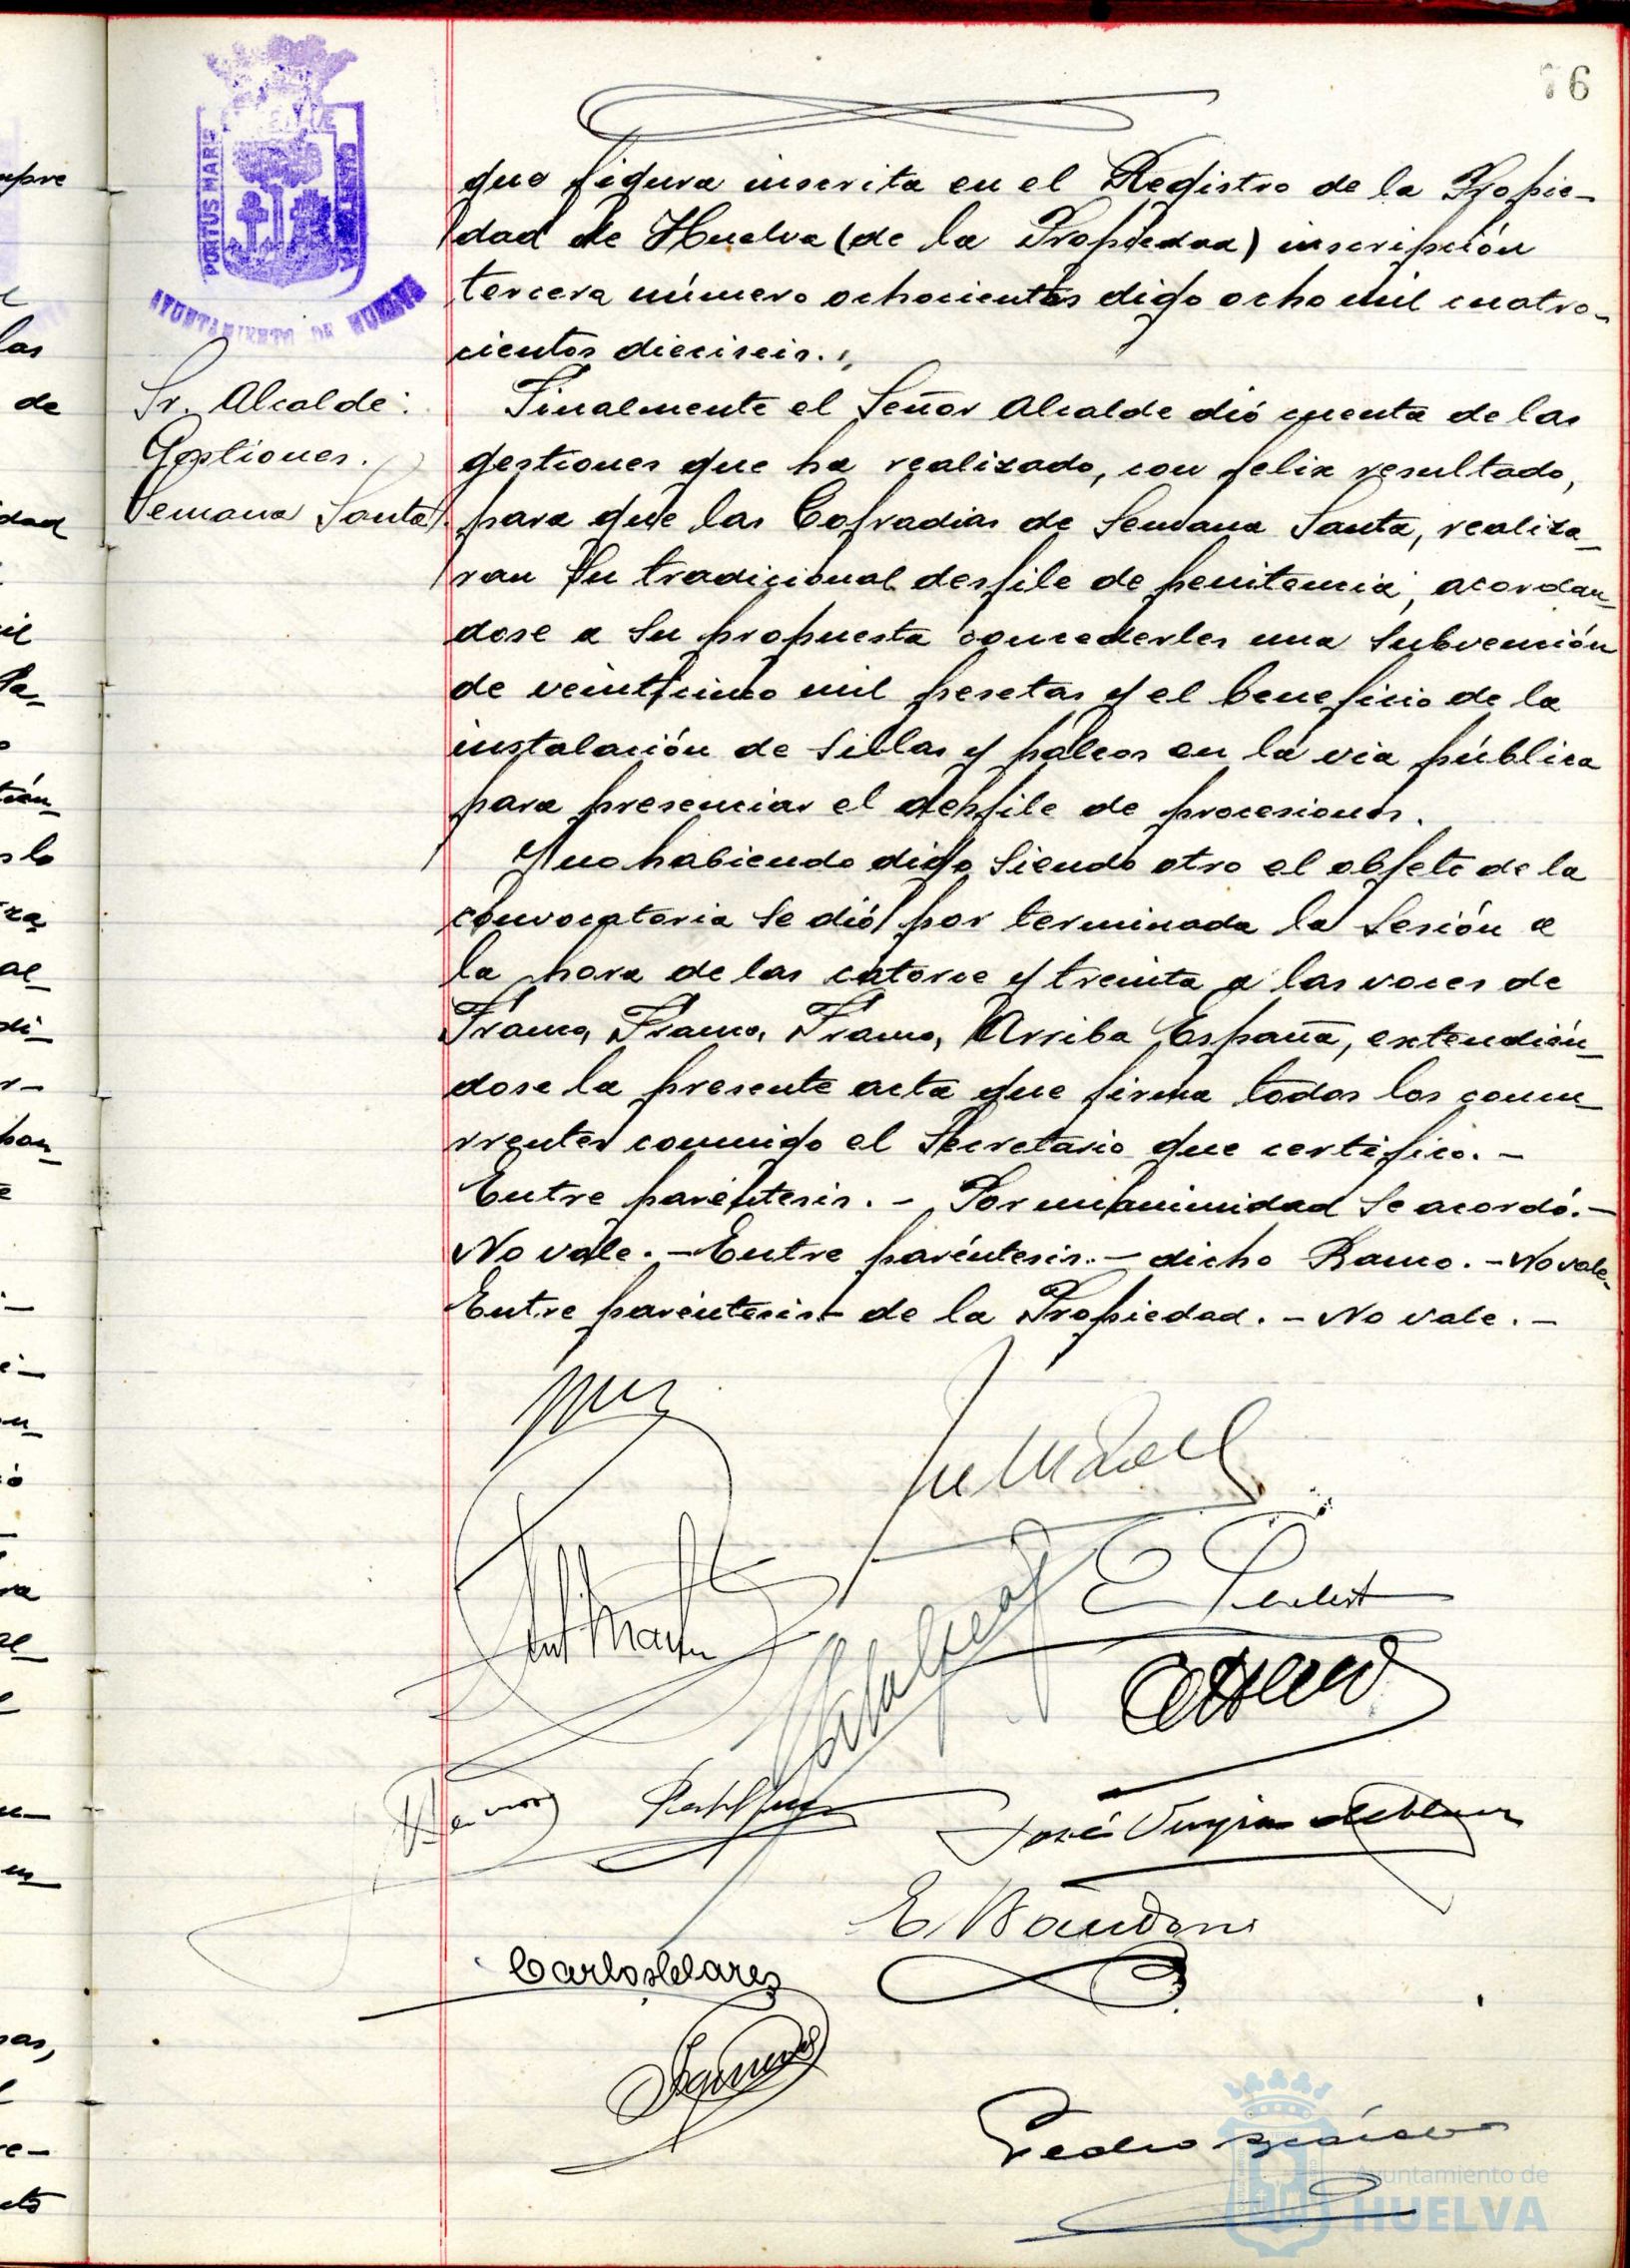 76
PORTUS MARIS
AYUNTAMIENTO DE HUELVA
que figura inscrita en el Registro de la Propie-
dad de Huelva (de la Propiedad) inscripción
tercera número ochocientos digo ocho mil cuatro-
cientos dieciseis.
Sr. Alcalde:
Gestiones.
Semana Santa
Finalmente el Señor Alcalde dió cuenta de las
gestiones que ha realizado, con felix resultado,
para que las Cofradias de Semana Santa, realiza-
ran su tradicional desfile de penitencia, acordan-
dose a su propuesta concederles una subvención
de veinticinco mil pesetas y el beneficio de la
instalación de sillas y palcos en la via pública
para presenciar el desfile de procesiones.
Y no habiendo digo siendo otro el objeto de la
convocatoria se dió por terminada la sesión a
la hora de las catorce y treinta a las voces de
Franco, Franco, Franco, Arriba España, extendién-
dose la presente acta que firma todos los concu-
rrentes conmigo el Secretario que certifico. -
Entre paréntesis. - Por unanimidad se acordó. -
No vale. - Entre paréntesis. - dicho Ramo. - No vale.
Entre paréntesis - de la Propiedad. - No vale. -
José
Carlos
Pedro
Ayuntamiento de
HUELVA